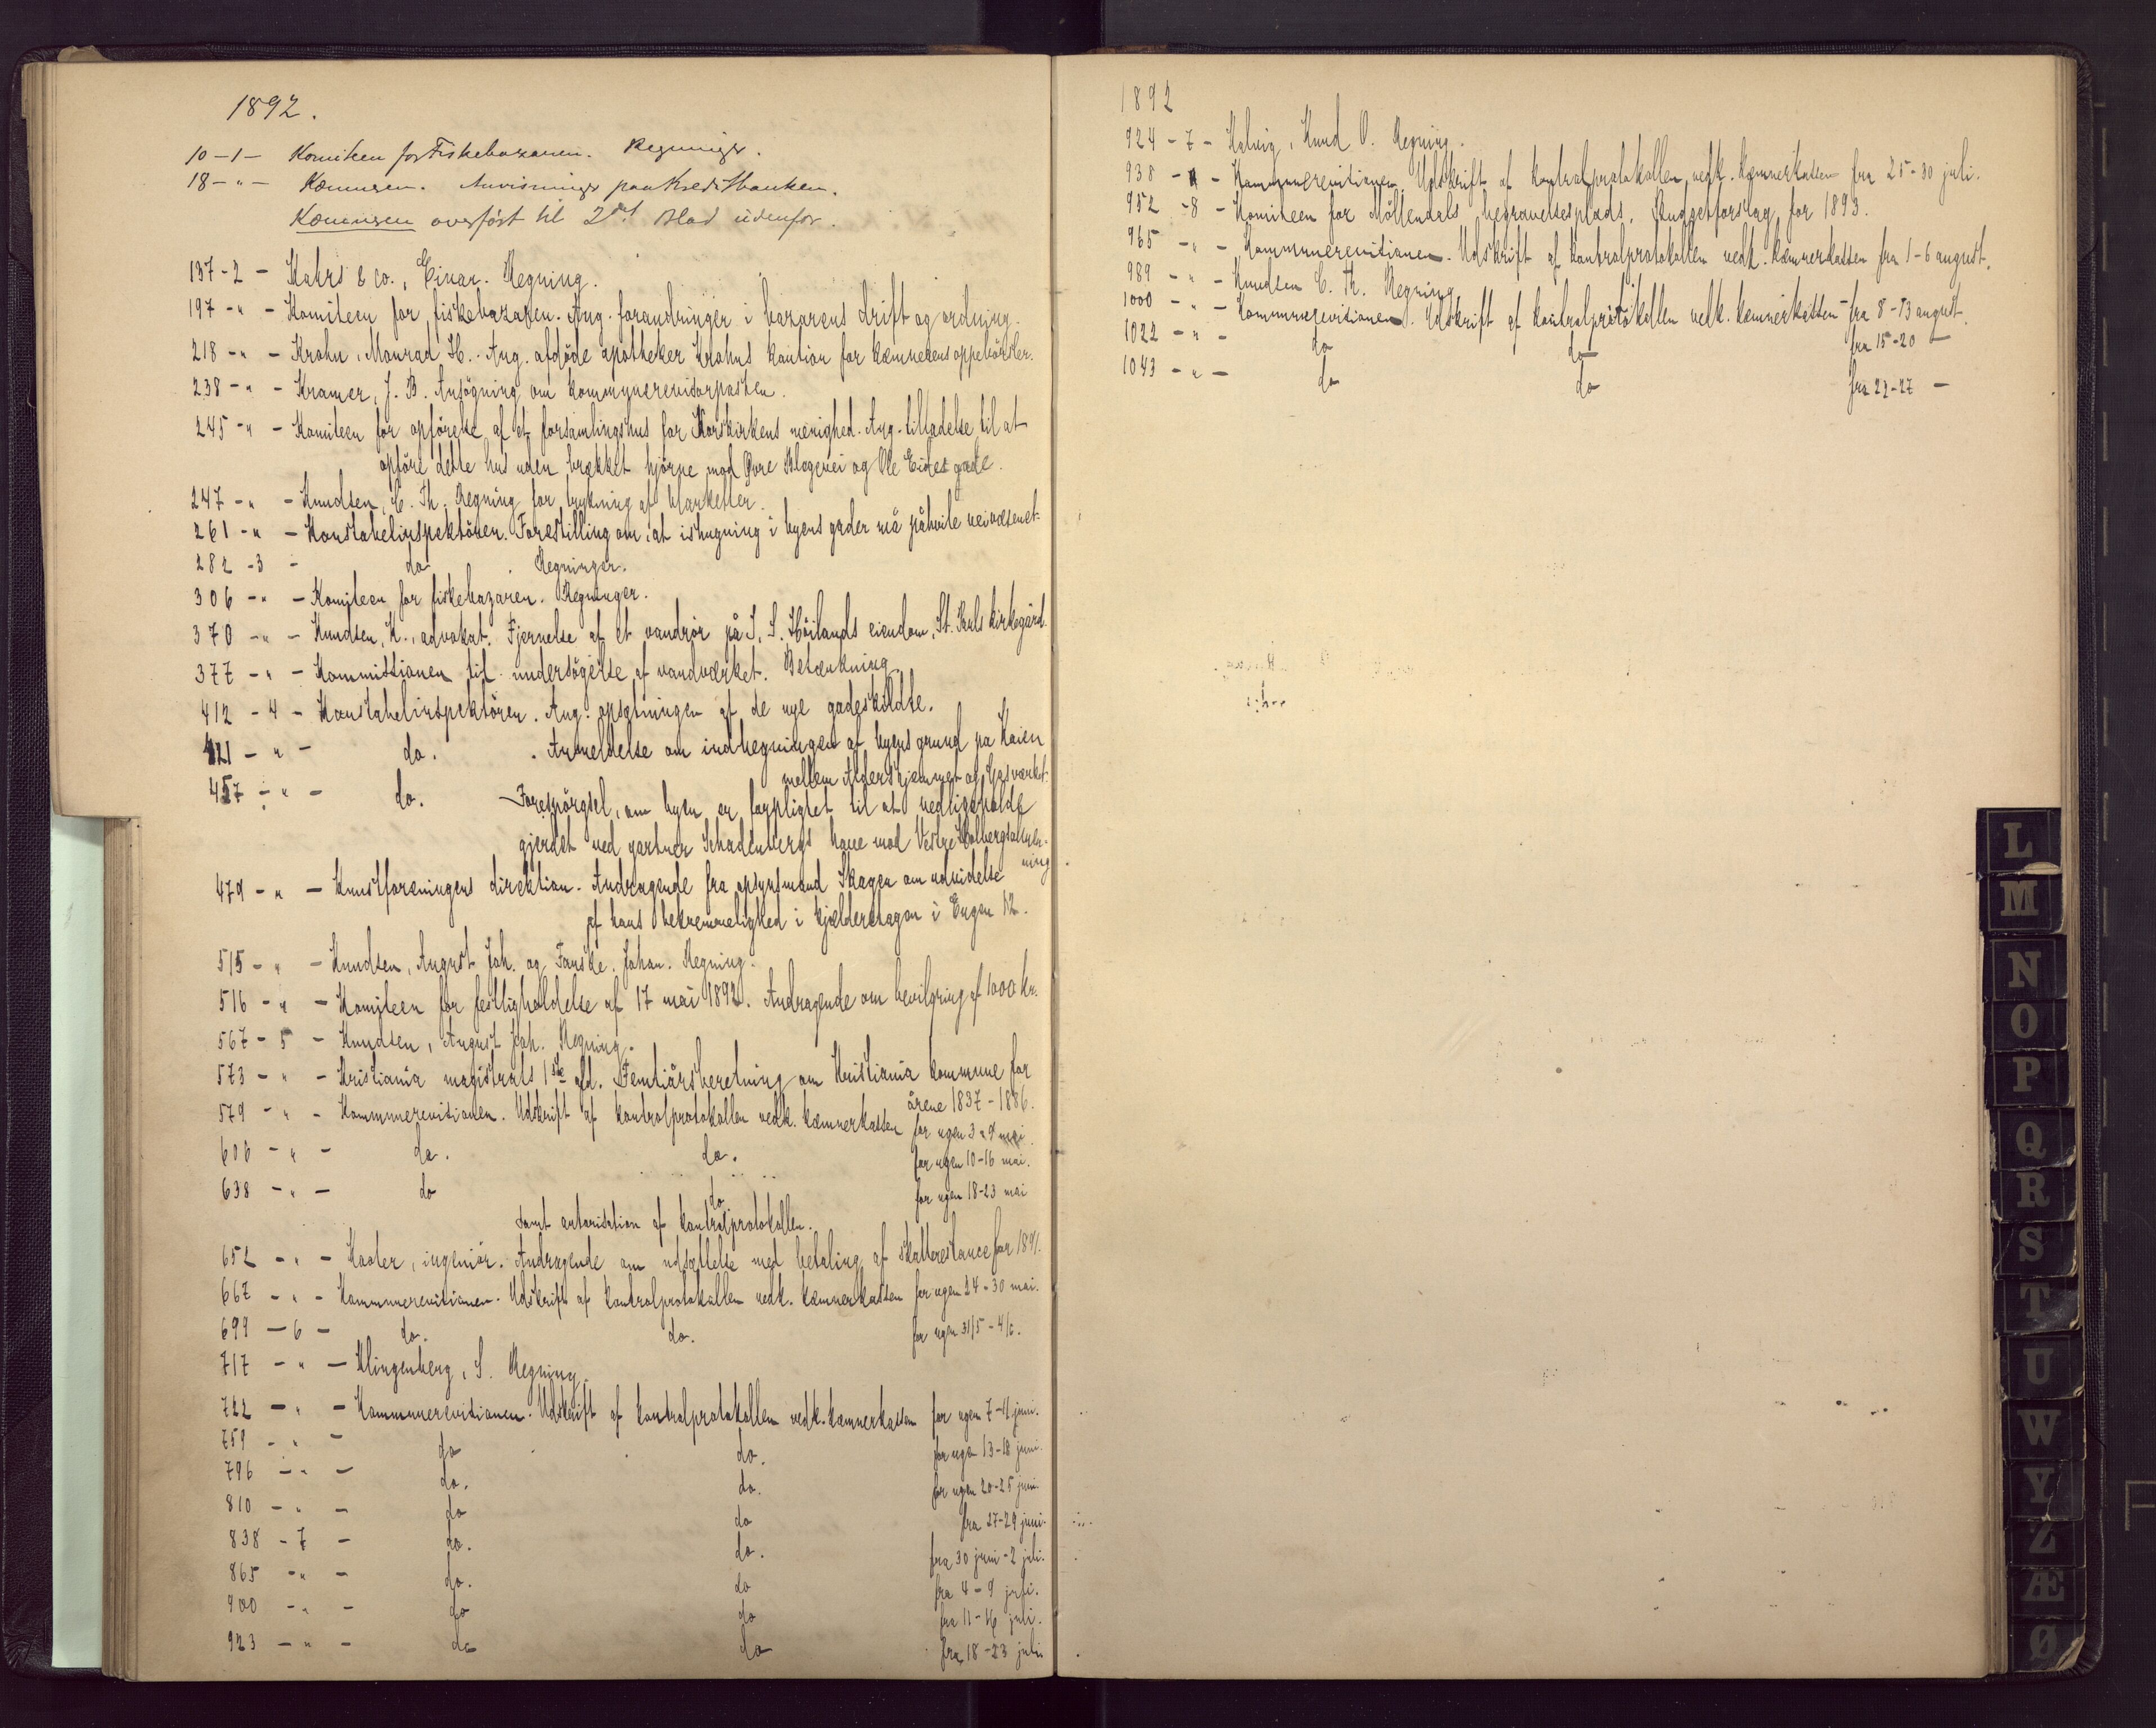 1892.
10 - 1 - Komiteen for Fiskebazaren. Regninger.
18 - " - Kæmneren. Anvisninger paa Kreditbanken.
Kæmneren overført til 2det Blad udenfor.
137 - 2 - Kahrs & Co., Einar. Regning.
197 - " - Komiteen for fiskebazaren. Ang. forandringer i bazarens drift og ordning.
218 - " - Krohn, Monrad H. Ang. afdøde apotheker Krohns kaution for kæmnerens oppebørsler.
238 - " - Kramer, J. B. Ansøgning om kommunerevisorposten.
245 - " - Komiteen for opførelse af et forsamlingshus for Korskirkens menighed. Ang. tilladelse til at
opføre dette hus uden brækket hjørne mod Øvre Blegevei og Ole Eides gade.
247 - " - Knudsen, C. Th. Regning for trykning af blanketter.
261 - " - Konstabelinspektøren. Forestilling om, at ishugning i byens gader må påhvile veivæsenet.
282 - 3 - do Regninger.
306 - " - Komiteen for fiskebazaren. Regninger.
370 - " - Knudsen, K., advokat. Fjernelse af et vandrør på J. S. Høilands eiendom, St. Pauls kirkegård.
377 - " - Kommissionen til undersøgelse af vandværket. Betænkning.
412 - 4 - Konstabelinspektøren. Ang. opsætningen af de nye gadeskildte.
421 - " - do. . Anmeldelse om indhegningen af byens grund på Kaien
mellem Aldershjemmet og Gasværket.
457 - " - do. - Forespørgsel, om byen er forpligtet til at vedligeholde
gjerdet ved gartner Schadenbergs have mod Vestre Holbergsalmen-
ning
479 - " - Kunstforeningens direktion. Andragende fra opsynsmand Skagen om udvidelse
af hans bekvemmelighed i kjælderetagen i Engen 12.
515 - " - Knudsen, August Joh. og Fanske, Johan. Regning.
516 - " - Komiteen for festligholdelse af 17 mai 1892. Andragende om bevilgning af 1000 kr.
567 - 5 - Knudsen, August Joh. Regning.
573 - " - Kristiania magistrats 1ste afd. Femtiårsberetning om Kristiania kommune for
årene 1837-1886.
579 - " - Kommunerevisionen. Udskrift af kontrolprotokollen vedk. kæmnerkassen for ugen 3-9 mai
606 - " - do. do. for ugen 10-16 mai.
638 - " - do do for ugen 18-23 mai
samt autorisation af kontrolprotokollen.
652 - " - Kaater, ingeniør. Andragende om udsættelse med betaling af skatterestance for 1891.
667 - " - Kommunerevisionen. Udskrift af kontrolprotokollen vedk. kæmnerkassen for ugen 24-30 mai.
699 - 6 - do. do. for ugen 31/5 - 4/6.
717 - " - Klingenberg, S. Regning.
722 - " - Kommunerevisionen. Udskrift af kontrolprotokollen vedk. kæmnerkassen for ugen 7-11 juni.
759 - " - do do. for ugen 13-18 juni.
796 - " - do. do. for ugen 20-25 juni.
810 - " - do do fra 27-29 juni.
838 - 7 - do. do. fra 30 juni - 2 juli.
865 - " - do. do fra 4-9 juli.
900 - " - do do fra 11-16 juli.
923 - " - do do fra 18-23 juli
1892
924 - 7 - Kalvig, Knud O. Regning.
938 - " - Kommunerevisionen. Udskrift af kontrolprotokollen vedk. kæmnerkassen fra 25-30 juli.
952 - 8 - Komiteen for Møllendals begravelsesplads. Budgetforslag for 1893.
965 - " - Kommunerevisionen. Udskrift af kontrolprotokollen vedk. kæmnerkassen fra 1-6 august.
989 - " - Knudsen C. Th. Regning
1000 - " - Kommunerevisionen. Udskrift af kontrolprotokollen vedk. kæmnerkassen fra 8-13 august.
1022 - " - do do fra 15-20 -
1043 - " - do do fra 22-27 -
L
M
N
O
P
Q
R
S
T
U
W
Y
Z
Æ
Ø